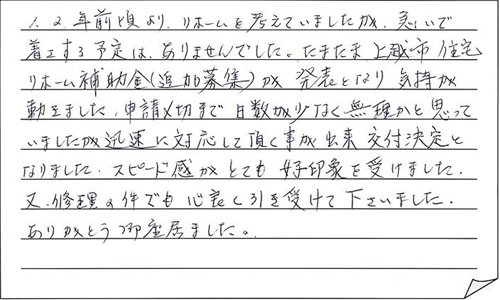 1、2年前頃より、リホームを考えていましたが、急いで
着工する予定は、ありませんでした。たまたま上越市住宅
リホーム補助金(追加募集)が発表となり気持が
動きました。申請〆切まで日数が少なく無理かと思って
いましたが迅速に対応して頂く事が出来交付決定と
なりました。スピード感がとても好印象を受けました。
又、修理の件でも心良く引き受けて下さいました。
ありがとう御座居ました。